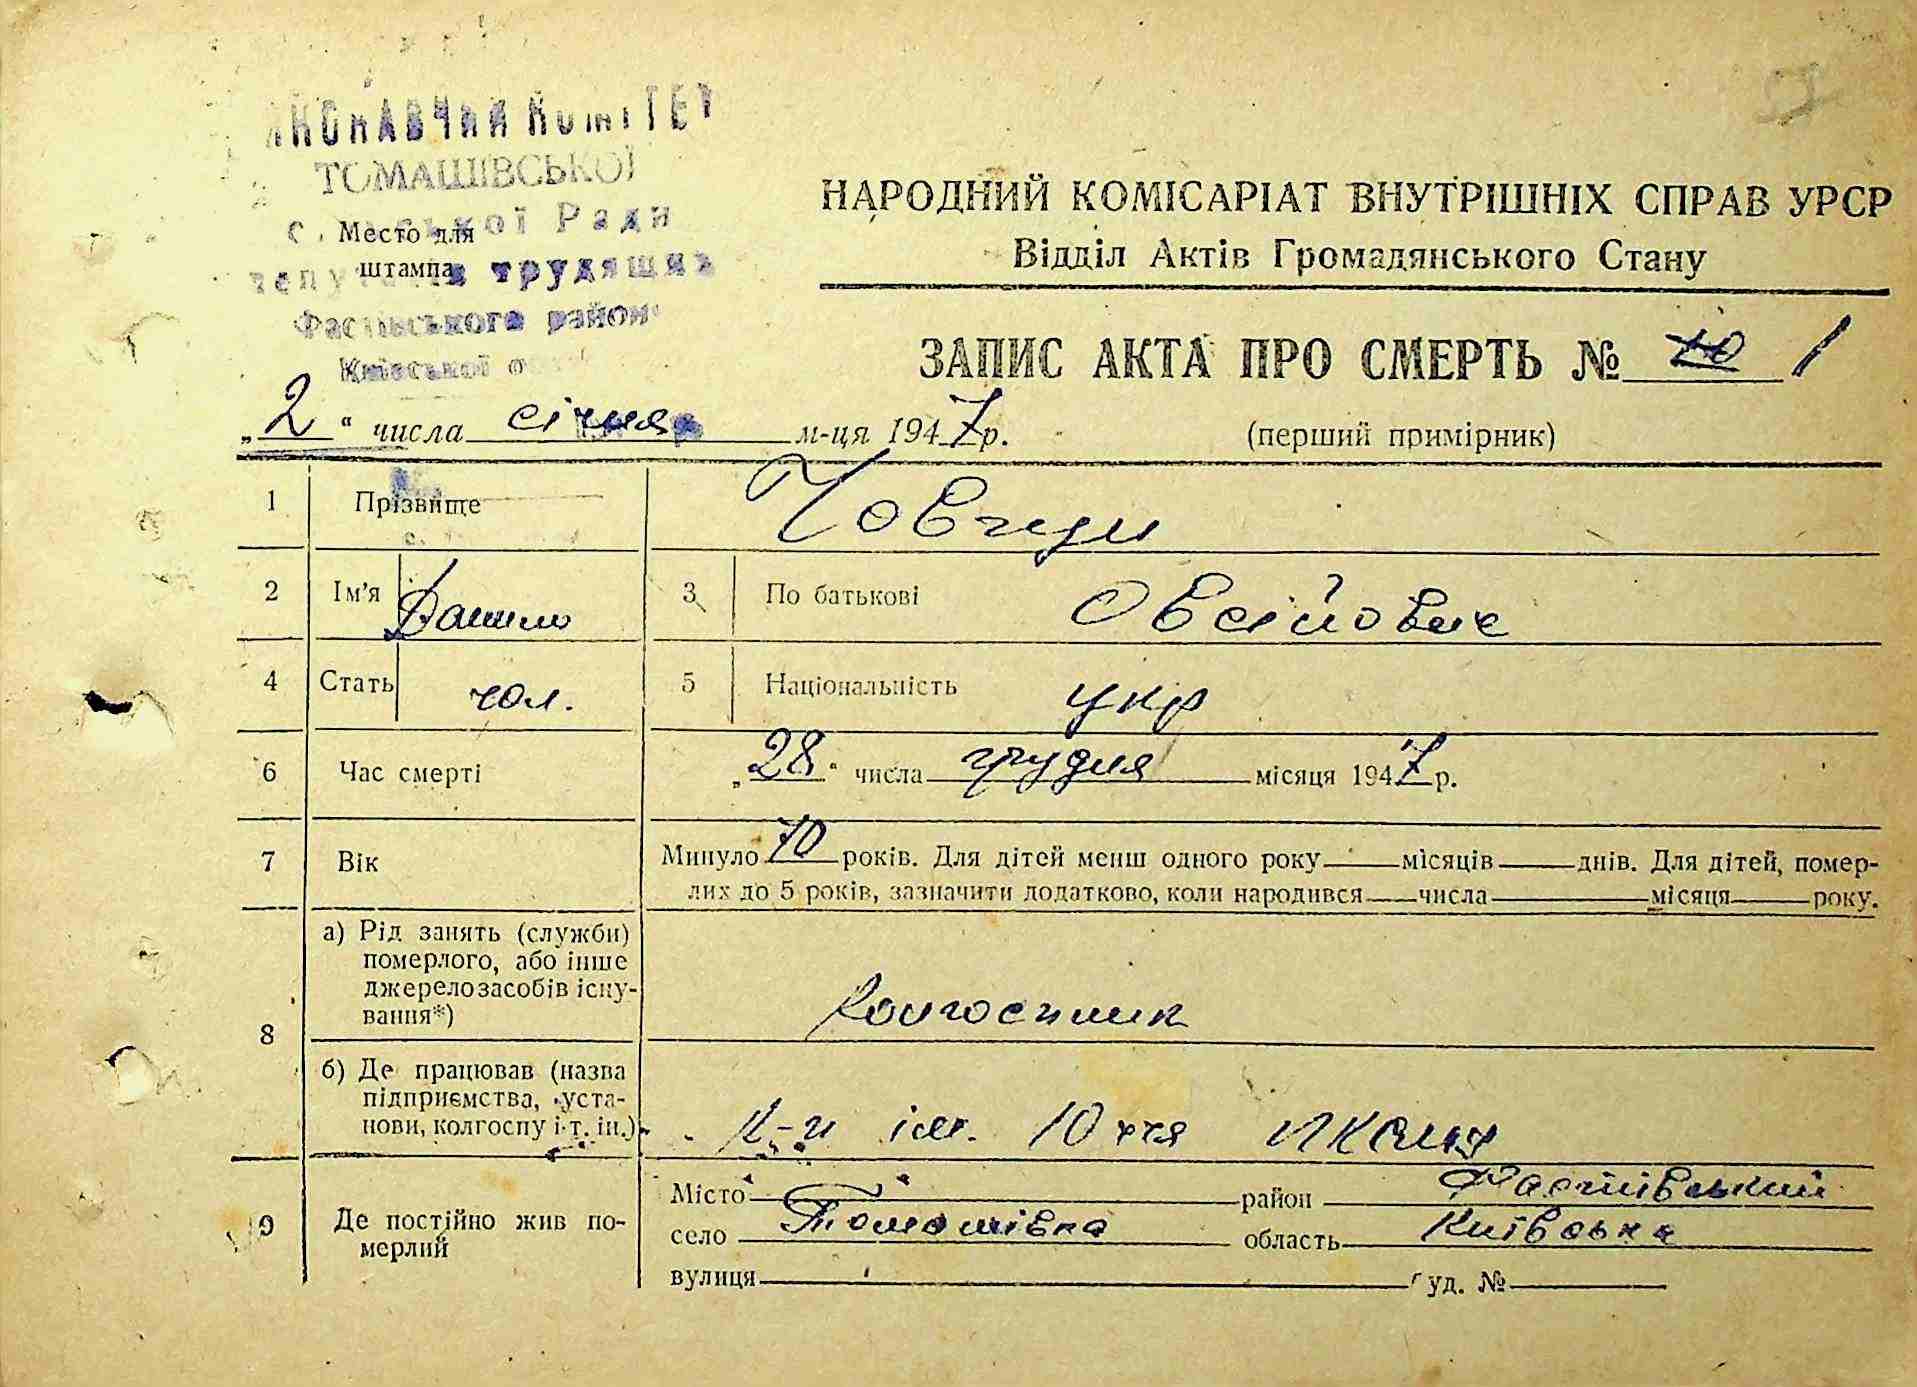 ВИКОНАВЧИЙ КОМІТЕТ
ТОМАШІВСЬКОЇ
сільської Ради
депутатів трудящих
Фастівського району
Київської о
Место для
штампа
НАРОДНИЙ КОМІСАРІАТ ВНУТРІШНІХ СПРАВ УРСР
Відділ Актів Громадянського Стану
ЗАПИС АКТА ПРО СМЕРТЬ № 10 1
„2“ числа січня м-ця 1947 р. (перший примірник)
1 Прізвище
2 Ім'я Данило 3 По батькові Овсійович
4 Стать чол. 5 Національність укр
6 Час смерті „28“ числа грудня місяця 1947 р.
7 Вік Минуло 70 років. Для дітей менш одного року місяців днів. Для дітей, помер-
лих до 5 років, зазначити додатково, коли народився числа місяця року.
8 а) Рід занять (служби)
померлого, або інше
джерело засобів існу-
вання*) Колгоспник
б) Де працював (назва
підприємства, уста-
нови, колгоспу і т. ін.) К-п ім. 10 ччя ЛКСМУ
9 Де постійно жив по-
мерлий
Місто район Фастівський
село Томашівка область Київська
вулиця буд. №